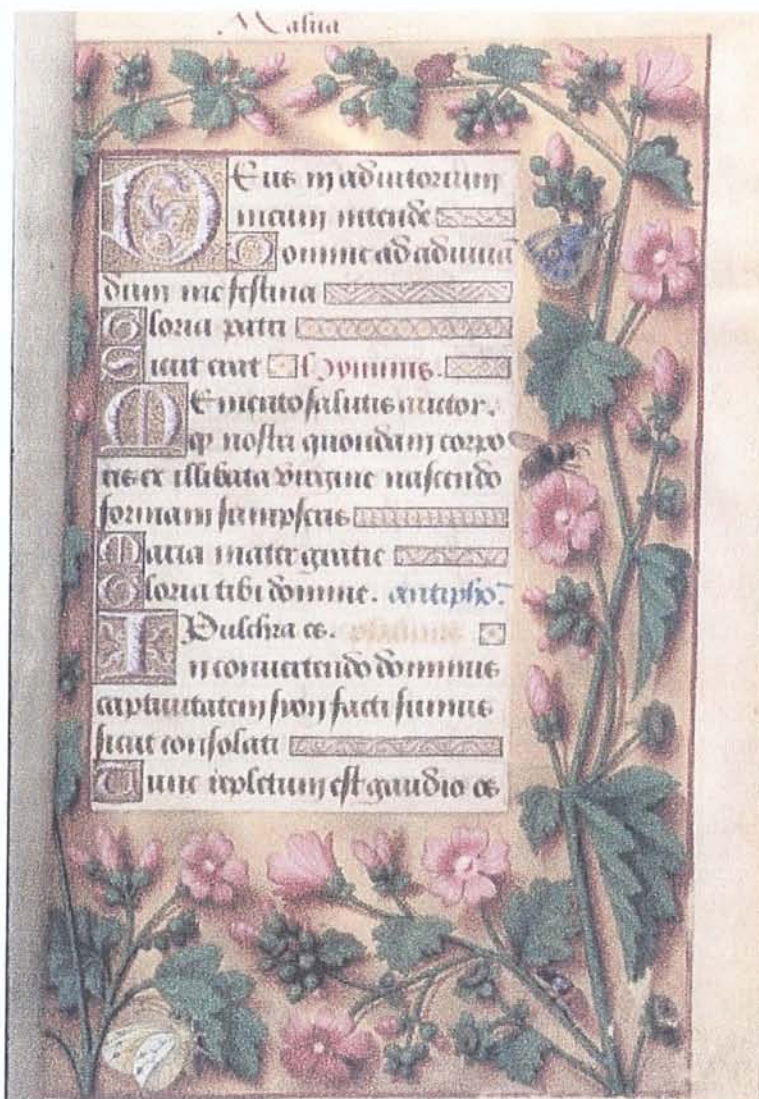 Malua
Deus in adiutorium
meum intende
Domine ad adiuuā
dum me festina
Gloria patri
Sicut erat Hymnus.
Memento salutis auctor.
q nostri quondam corpo
ris ex illibata virgine nascendo
formam sumpseris
Maria mater gratie
Gloria tibi domine. antipho.
Pulchra es.
In conuertendo dominus
captiuitatem syon facti sumus
sicut consolati
Tunc repletum est gaudio os